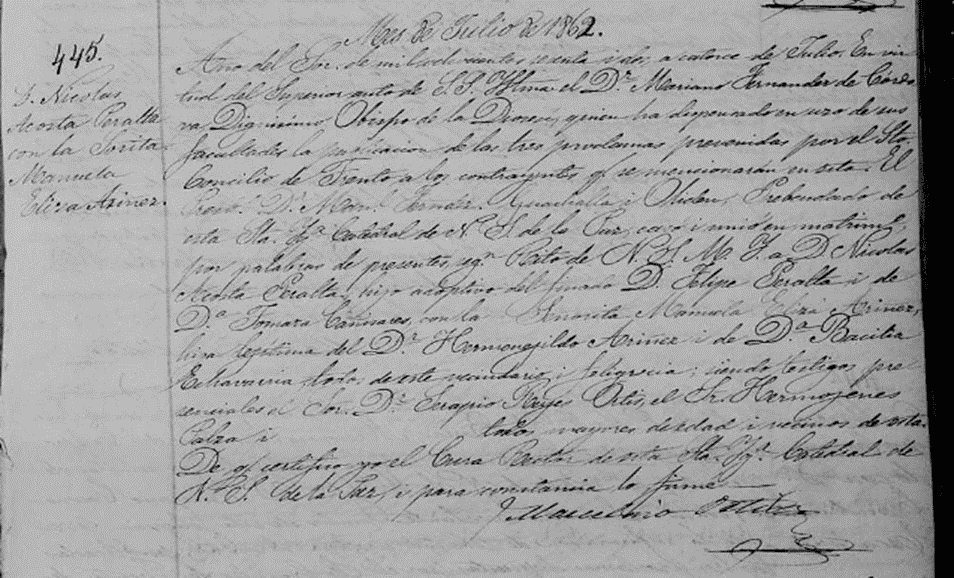 Mes de Julio de 1862.
445.
D. Nicolas
Acosta Peralta
con la Sorita
Manuela
Eliza Ariñez.
Año del Sor. de mil ochocientos sesenta i dos, a catorce de Julio. En vir
tud del Superior auto de S.S. Yllma. el Dr. Mariano Fernandez de Cordo
va Dignisimo Obispo de la Diocesis, quien ha dispensado en uzo de sus
facultades la publicacion de las tres proclamas prevenidas por el Sto.
Concilio de Trento a los contrayentes q. se mencionarán en esta. El
Dr. Man. Fernz. Prebendado de
esta Sta. Yga. Catedral de N. S. de la Paz, casó i unió en matrimo.
por palabras de presentes, segn. Rito de N. S. M. Y. a D. Nicolas
Acosta Peralta, hijo adoptivo del finado D. Felipe Peralta i de
Da. Tomaza Cañizares, con la Señorita Manuela Eliza Ariñez,
hija legitima del Dr. Hermenejildo Ariñez i de Da. Bacilia
Echavarria todos de este vecindario i feligrecia; siendo testigos pre
senciales el Sor. Dr. Serapio Reyes Ortis, el Sr. Hermojenes
Calza i todos mayores de edad i vecinos de esta.
De q. certifico yo el Cura Rector de esta Sta. Yga. Catedral de
Na. S. de la Paz, i para constancia lo firmé
Marcelino